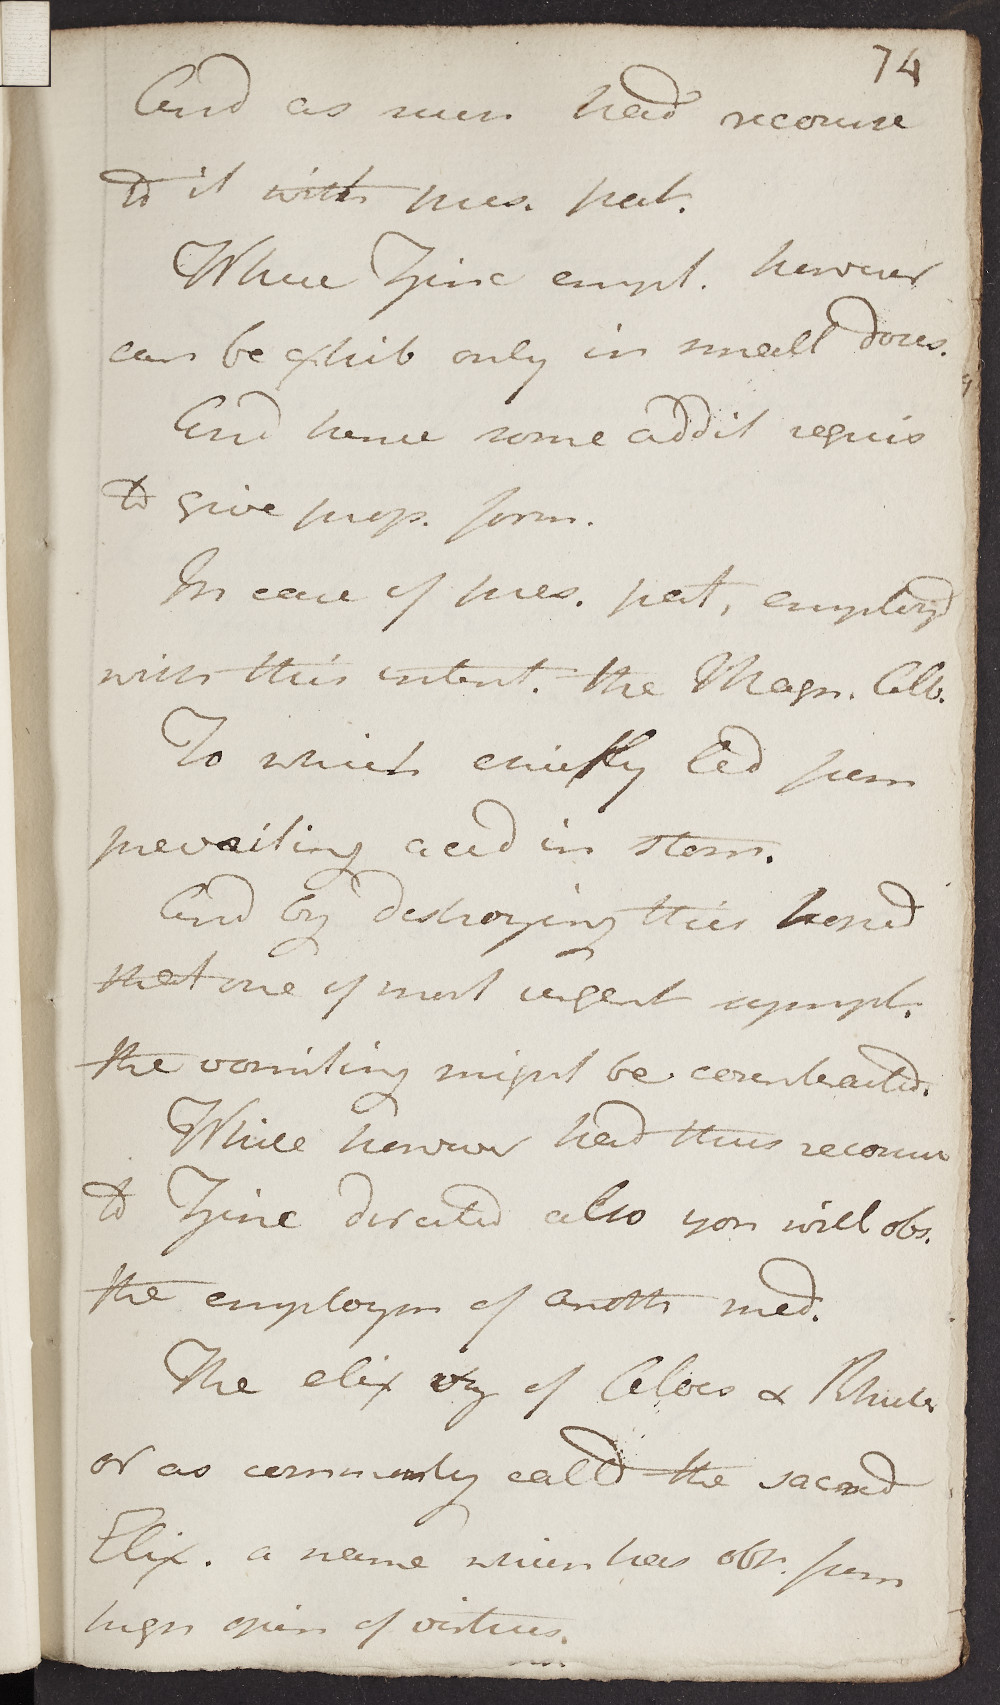 74
And as such had recourse
to it with pres. pat.
Where Tinc empl. however
can be exhib only in small doses.
And hence some addit requis
to give prop. form.
In case of pres. pat, employd
with this intent. the Magn. Alb.
To which chiefly led from
prevailing acid in stom.
And by destroying this hoped
that one of most urgent sympt.
the vomiting might be counteracted.
While however had thus recourse
to Tinc directed also you will obs.
the employm of anoth med.
The elix of Aloes & Rhub
or as commonly calld the sacred
Elix. a name which has obt. from
high opin of virtues.